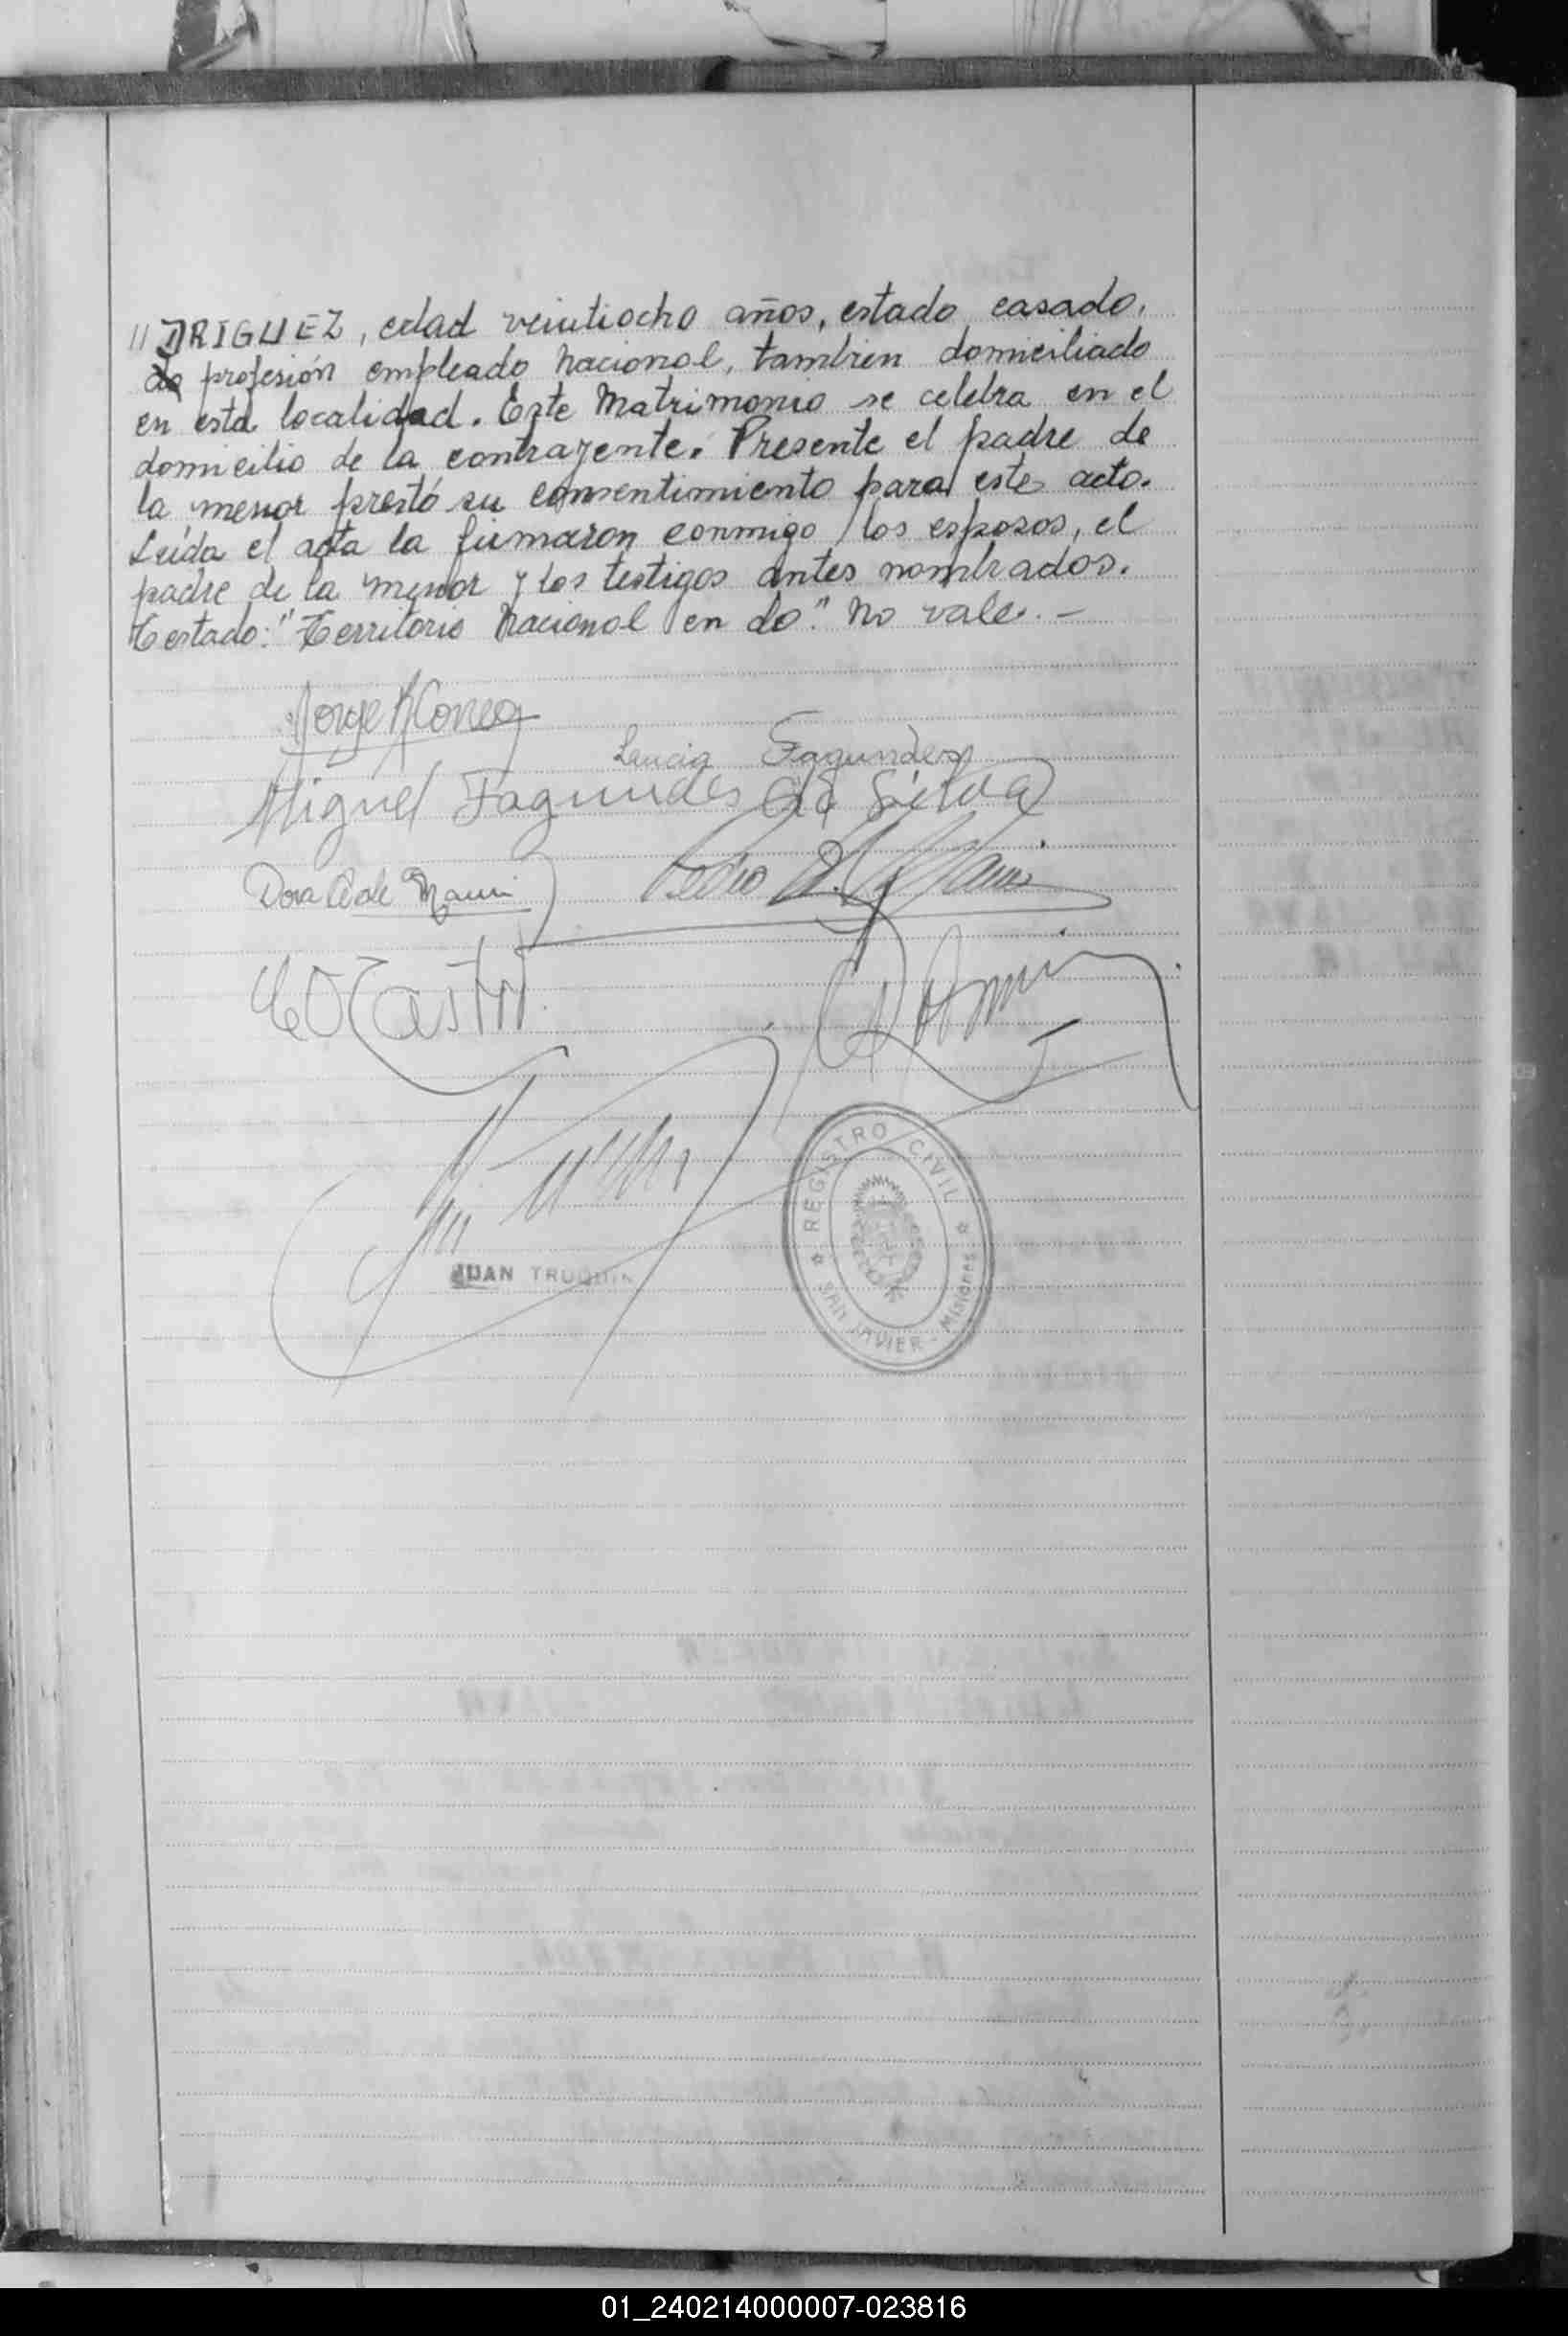 //DRIGUEZ, edad veintiocho años, estado casado,
profesión empleado nacional, tambien domiciliado
en esta localidad. Este Matrimonio se celebra en el
domicilio de la contrayente. Presente el padre de
la menor prestó su consentimiento para este acto.
Leída el acta la firmaron conmigo los esposos, el
padre de la menor y los testigos antes nombrados.
Testado: "Territorio Nacional en do". No vale. —
Jorge
Lucia Fagundes
Miguel Fagundes da Silva
Dora Mauri
Pedro
Castro
JUAN TRUQUIN
REGISTRO CIVIL
SAN JAVIER - Misiones
01_240214000007-023816